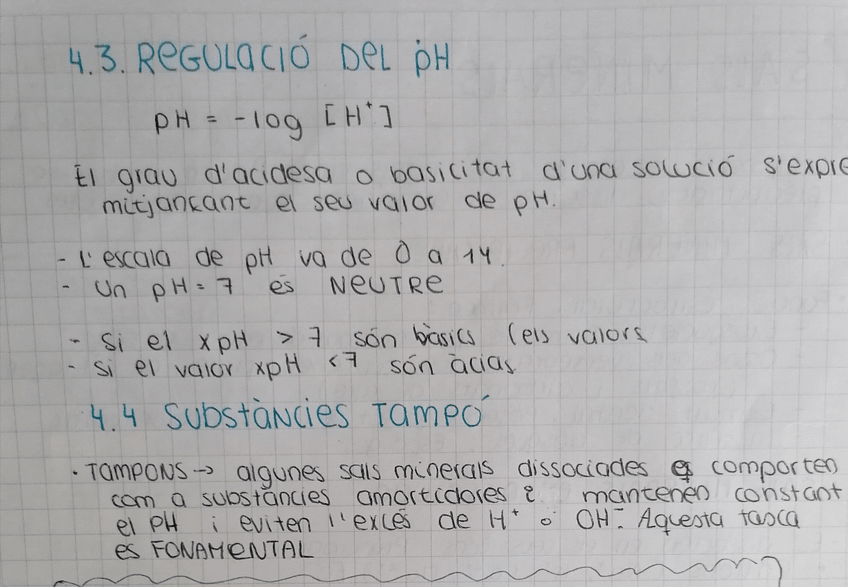 4.3. REGULACIÓ DEL pH
pH = -log [H⁺]
El grau d'acidesa o basicitat d'una solució s'expre
mitjançant el seu valor de pH.
- L'escala de pH va de 0 a 14.
- Un pH = 7 és NEUTRE
- Si el xpH > 7 són bàsics (els valors
- si el valor xpH <7 són àcids
4.4 SUBSTÀNCIES TAMPÓ
· TAMPONS → algunes sals minerals dissociades es comporten
com a substàncies amortidores i mantenen constant
el pH i eviten l'excés de H⁺ o OH⁻. Aquesta tasca
és FONAMENTAL